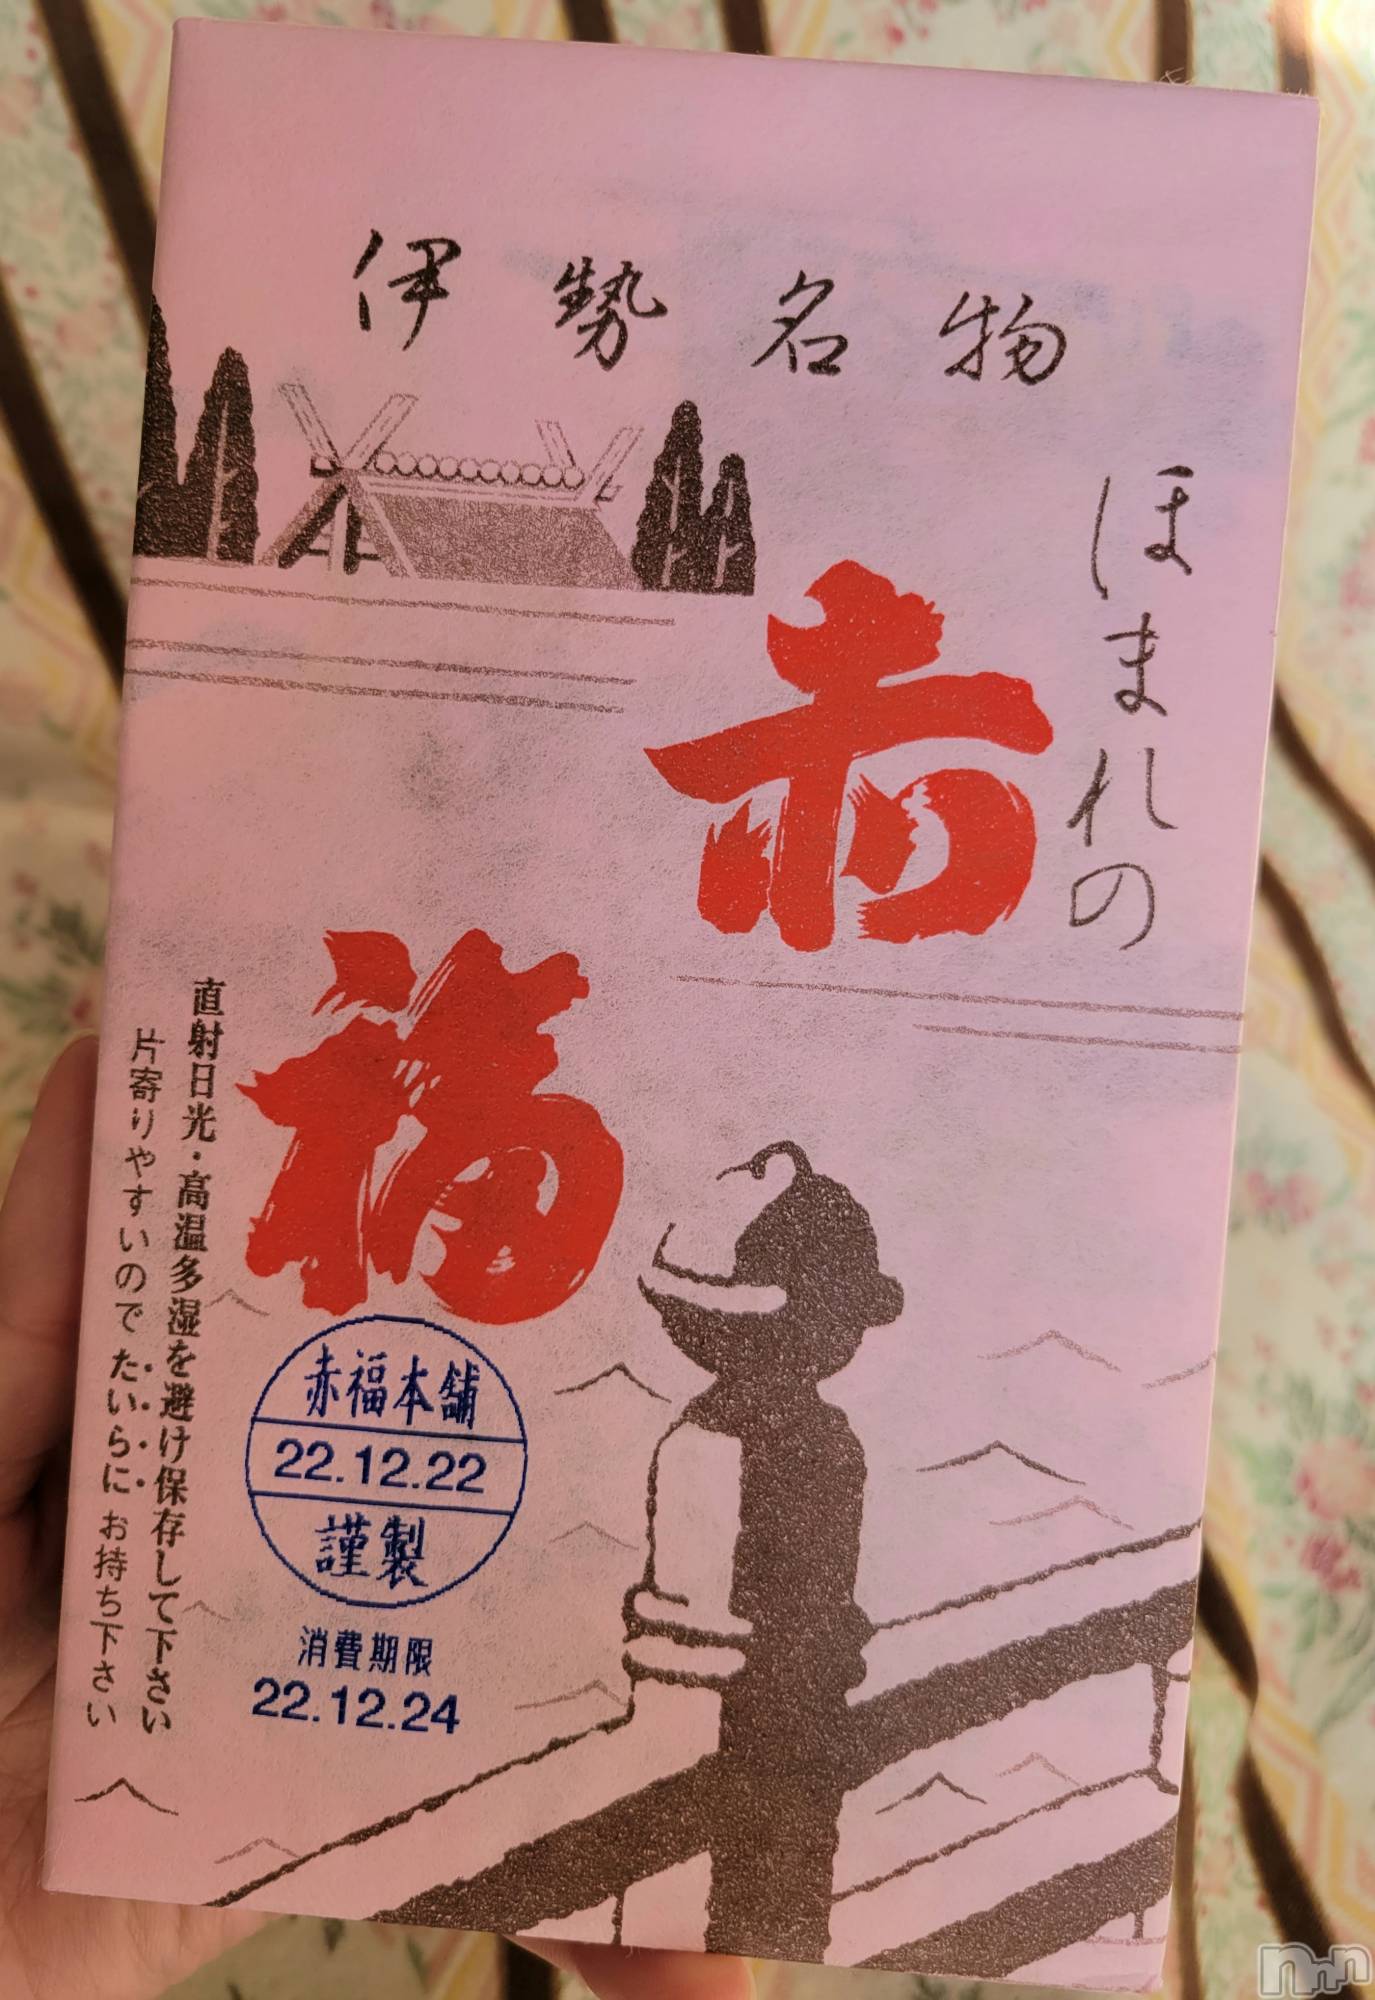 伊勢名物
ほまれの
赤福
直射日光・高温多湿を避け保存して下さい
片寄りやすいのでたいらにお持ち下さい
赤福本舗
22.12.22
謹製
消費期限
22.12.24